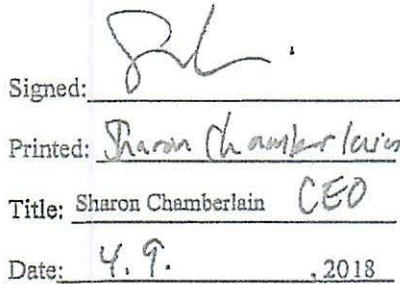 Signed:
Printed: Sharon Chamberlain
Title: Sharon Chamberlain CEO
Date: 4. 9. , 2018